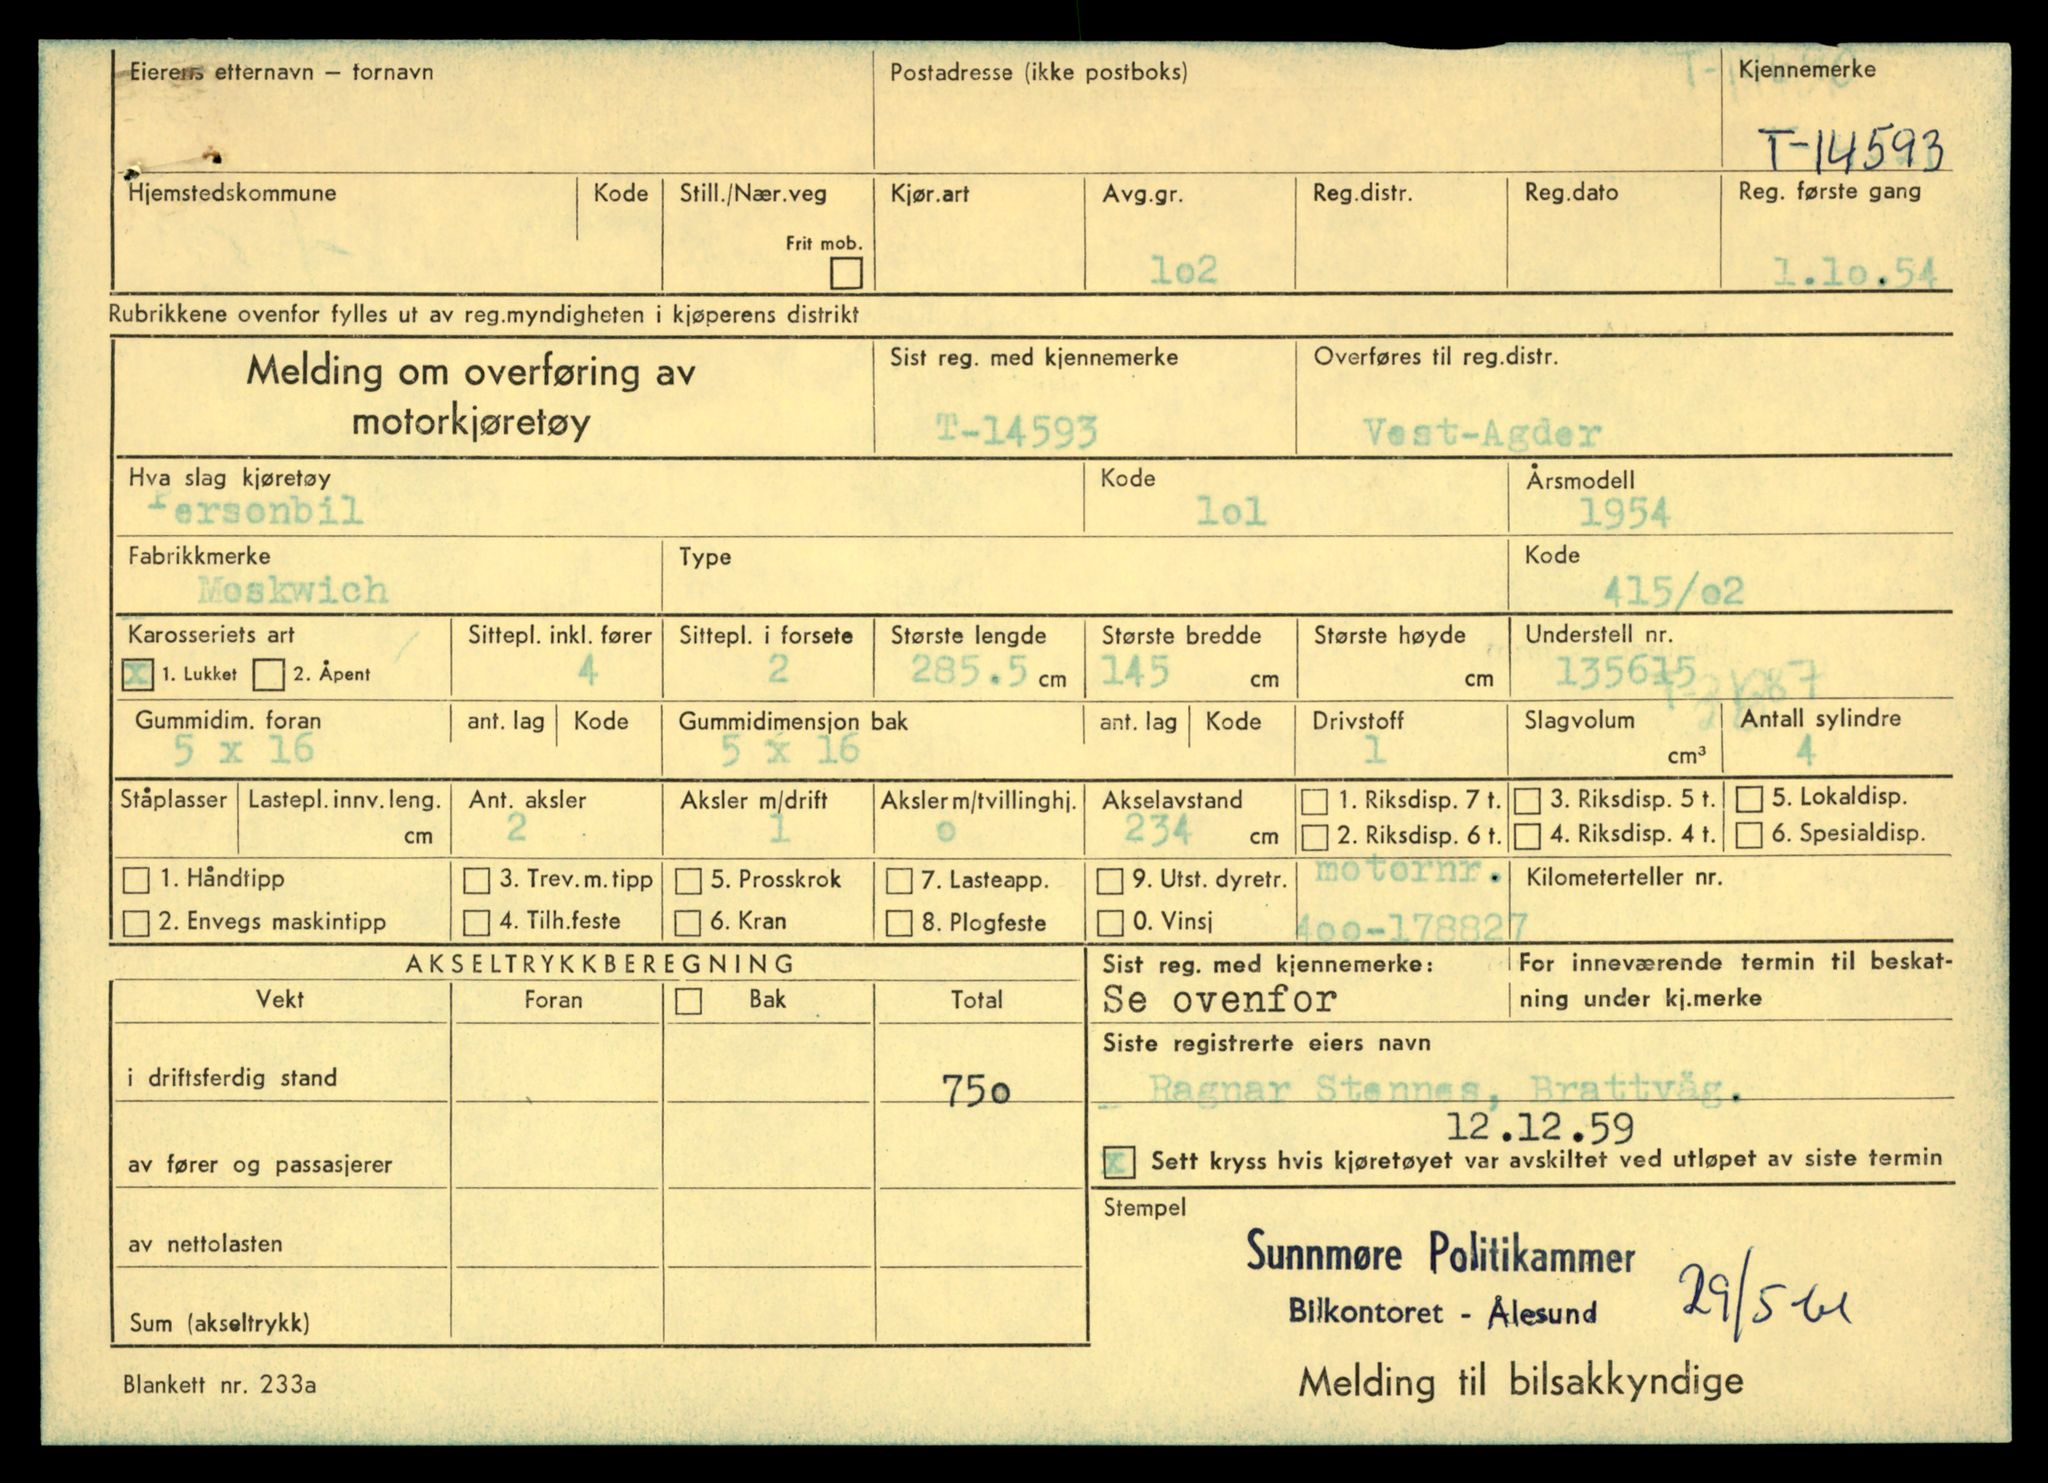 Eierens etternavn – fornavn Postadresse (ikke postboks) Kjennemerke
T-14593
Hjemstedskommune Kode Still./Nær.veg Kjør.art Avg.gr. Reg.distr. Reg.dato Reg. første gang
Frit mob.
1o2 1.1o.54
Rubrikkene ovenfor fylles ut av reg.myndigheten i kjøperens distrikt
Melding om overføring av motorkjøretøy
Sist reg. med kjennemerke Overføres til reg.distr.
T-14593 Vest-Agder
Hva slag kjøretøy Kode Årsmodell
Personbil 1o1 1954
Fabrikkmerke Type Kode
Moskwich 415/o2
Karosseriets art Sittepl. inkl. fører Sittepl. i forsete Største lengde Største bredde Største høyde Understell nr.
x 1. Lukket 2. Åpent 4 2 285.5 cm 145 cm cm 135615
Gummidim. foran ant. lag Kode Gummidimensjon bak ant. lag Kode Drivstoff Slagvolum Antall sylindre
5 x 16 5 x 16 1 cm³ 4
Ståplasser Lastepl. innv. leng. Ant. aksler Aksler m/drift Aksler m/tvillinghj. Akselavstand 1. Riksdisp. 7 t. 3. Riksdisp. 5 t. 5. Lokaldisp.
cm 2 1 o 234 cm 2. Riksdisp. 6 t. 4. Riksdisp. 4 t. 6. Spesialdisp.
1. Håndtipp 3. Trev.m.tipp 5. Prosskrok 7. Lasteapp. 9. Utst. dyretr. motornr. Kilometerteller nr.
2. Envegs maskintipp 4. Tilh.feste 6. Kran 8. Plogfeste 0. Vinsj 4oo-178827
AKSELTRYKKBEREGNING
Vekt Foran Bak Total
i driftsferdig stand 75o
av fører og passasjerer
av nettolasten
Sum (akseltrykk)
Sist reg. med kjennemerke: For inneværende termin til beskat-
Se ovenfor ning under kj.merke
Siste registrerte eiers navn
Ragnar Stennes, Brattvåg.
12.12.59
x Sett kryss hvis kjøretøyet var avskiltet ved utløpet av siste termin
Stempel
Sunnmøre Politikammer
Bilkontoret - Ålesund 29/5 61
Blankett nr. 233a
Melding til bilsakkyndige